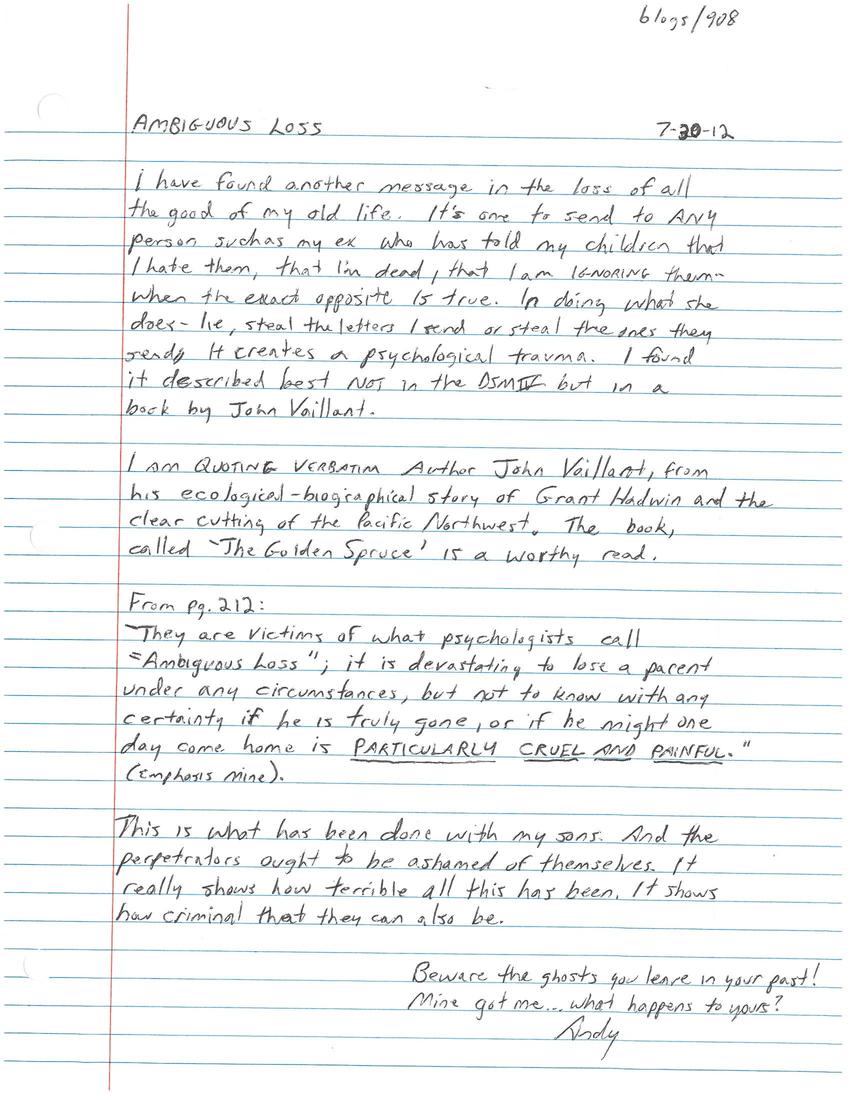 blogs/908
AMBIGUOUS LOSS 7-30-12
I have found another message in the loss of all
the good of my old life. It's one to send to ANY
person suchas my ex who has told my children that
I hate them, that I'm dead, that I am IGNORING them-
when the exact opposite is true. In doing what she
does- lie, steal the letters I send or steal the ones they
send, It creates a psychological trauma. I found
it described best NOT in the DSM IV but in a
book by John Vaillant.
I AM QUOTING VERBATIM Author John Vaillant, from
his ecological-biographical story of Grant Hadwin and the
clear cutting of the Pacific Northwest. The book,
called 'The Golden Spruce' is a worthy read.
From pg. 212:
"They are victims of what psychologists call
"Ambiguous Loss"; it is devastating to lose a parent
under any circumstances, but not to know with any
certainty if he is truly gone, or if he might one
day come home is PARTICULARLY CRUEL AND PAINFUL."
(Emphasis mine).
This is what has been done with my sons. And the
perpetrators ought to be ashamed of themselves. It
really shows how terrible all this has been. It shows
how criminal that they can also be.
Beware the ghosts you leave in your past!
Mine got me... what happens to yours?
Andy